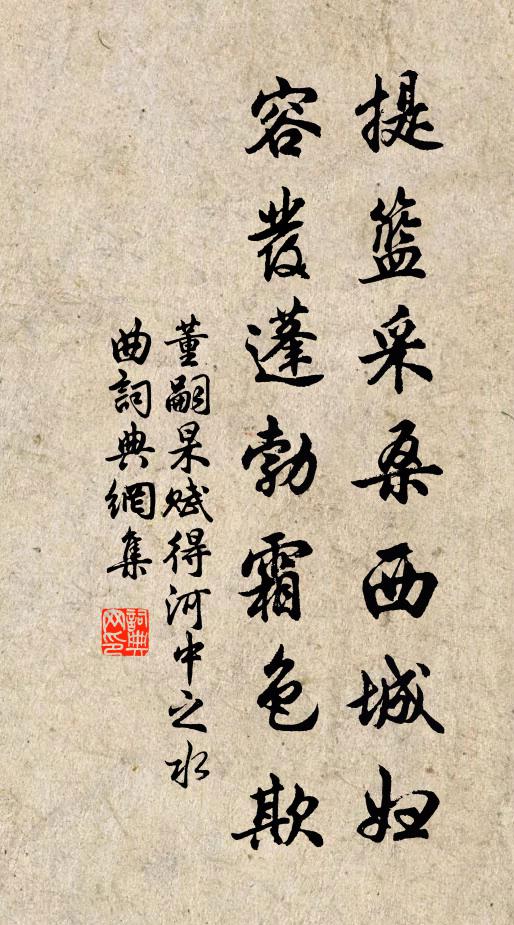 提籃采桑西城妇
容發蓬勃霜色欺
董嗣杲赋得河中之水
曲詞典網集
詞典
网印